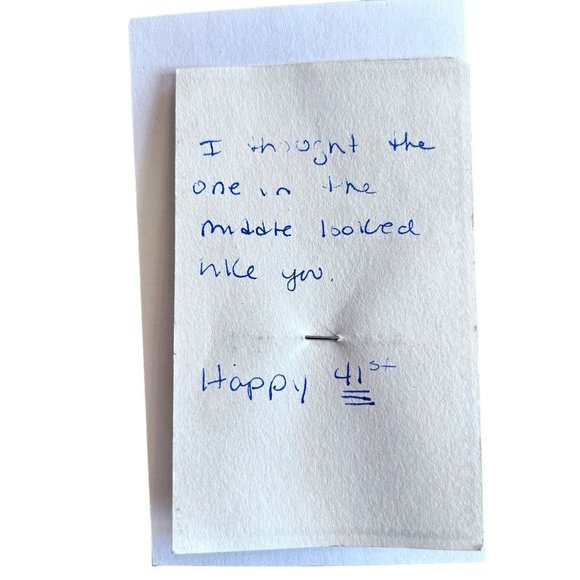 I thought the
one in the
middle looked
like you.
Happy 41st